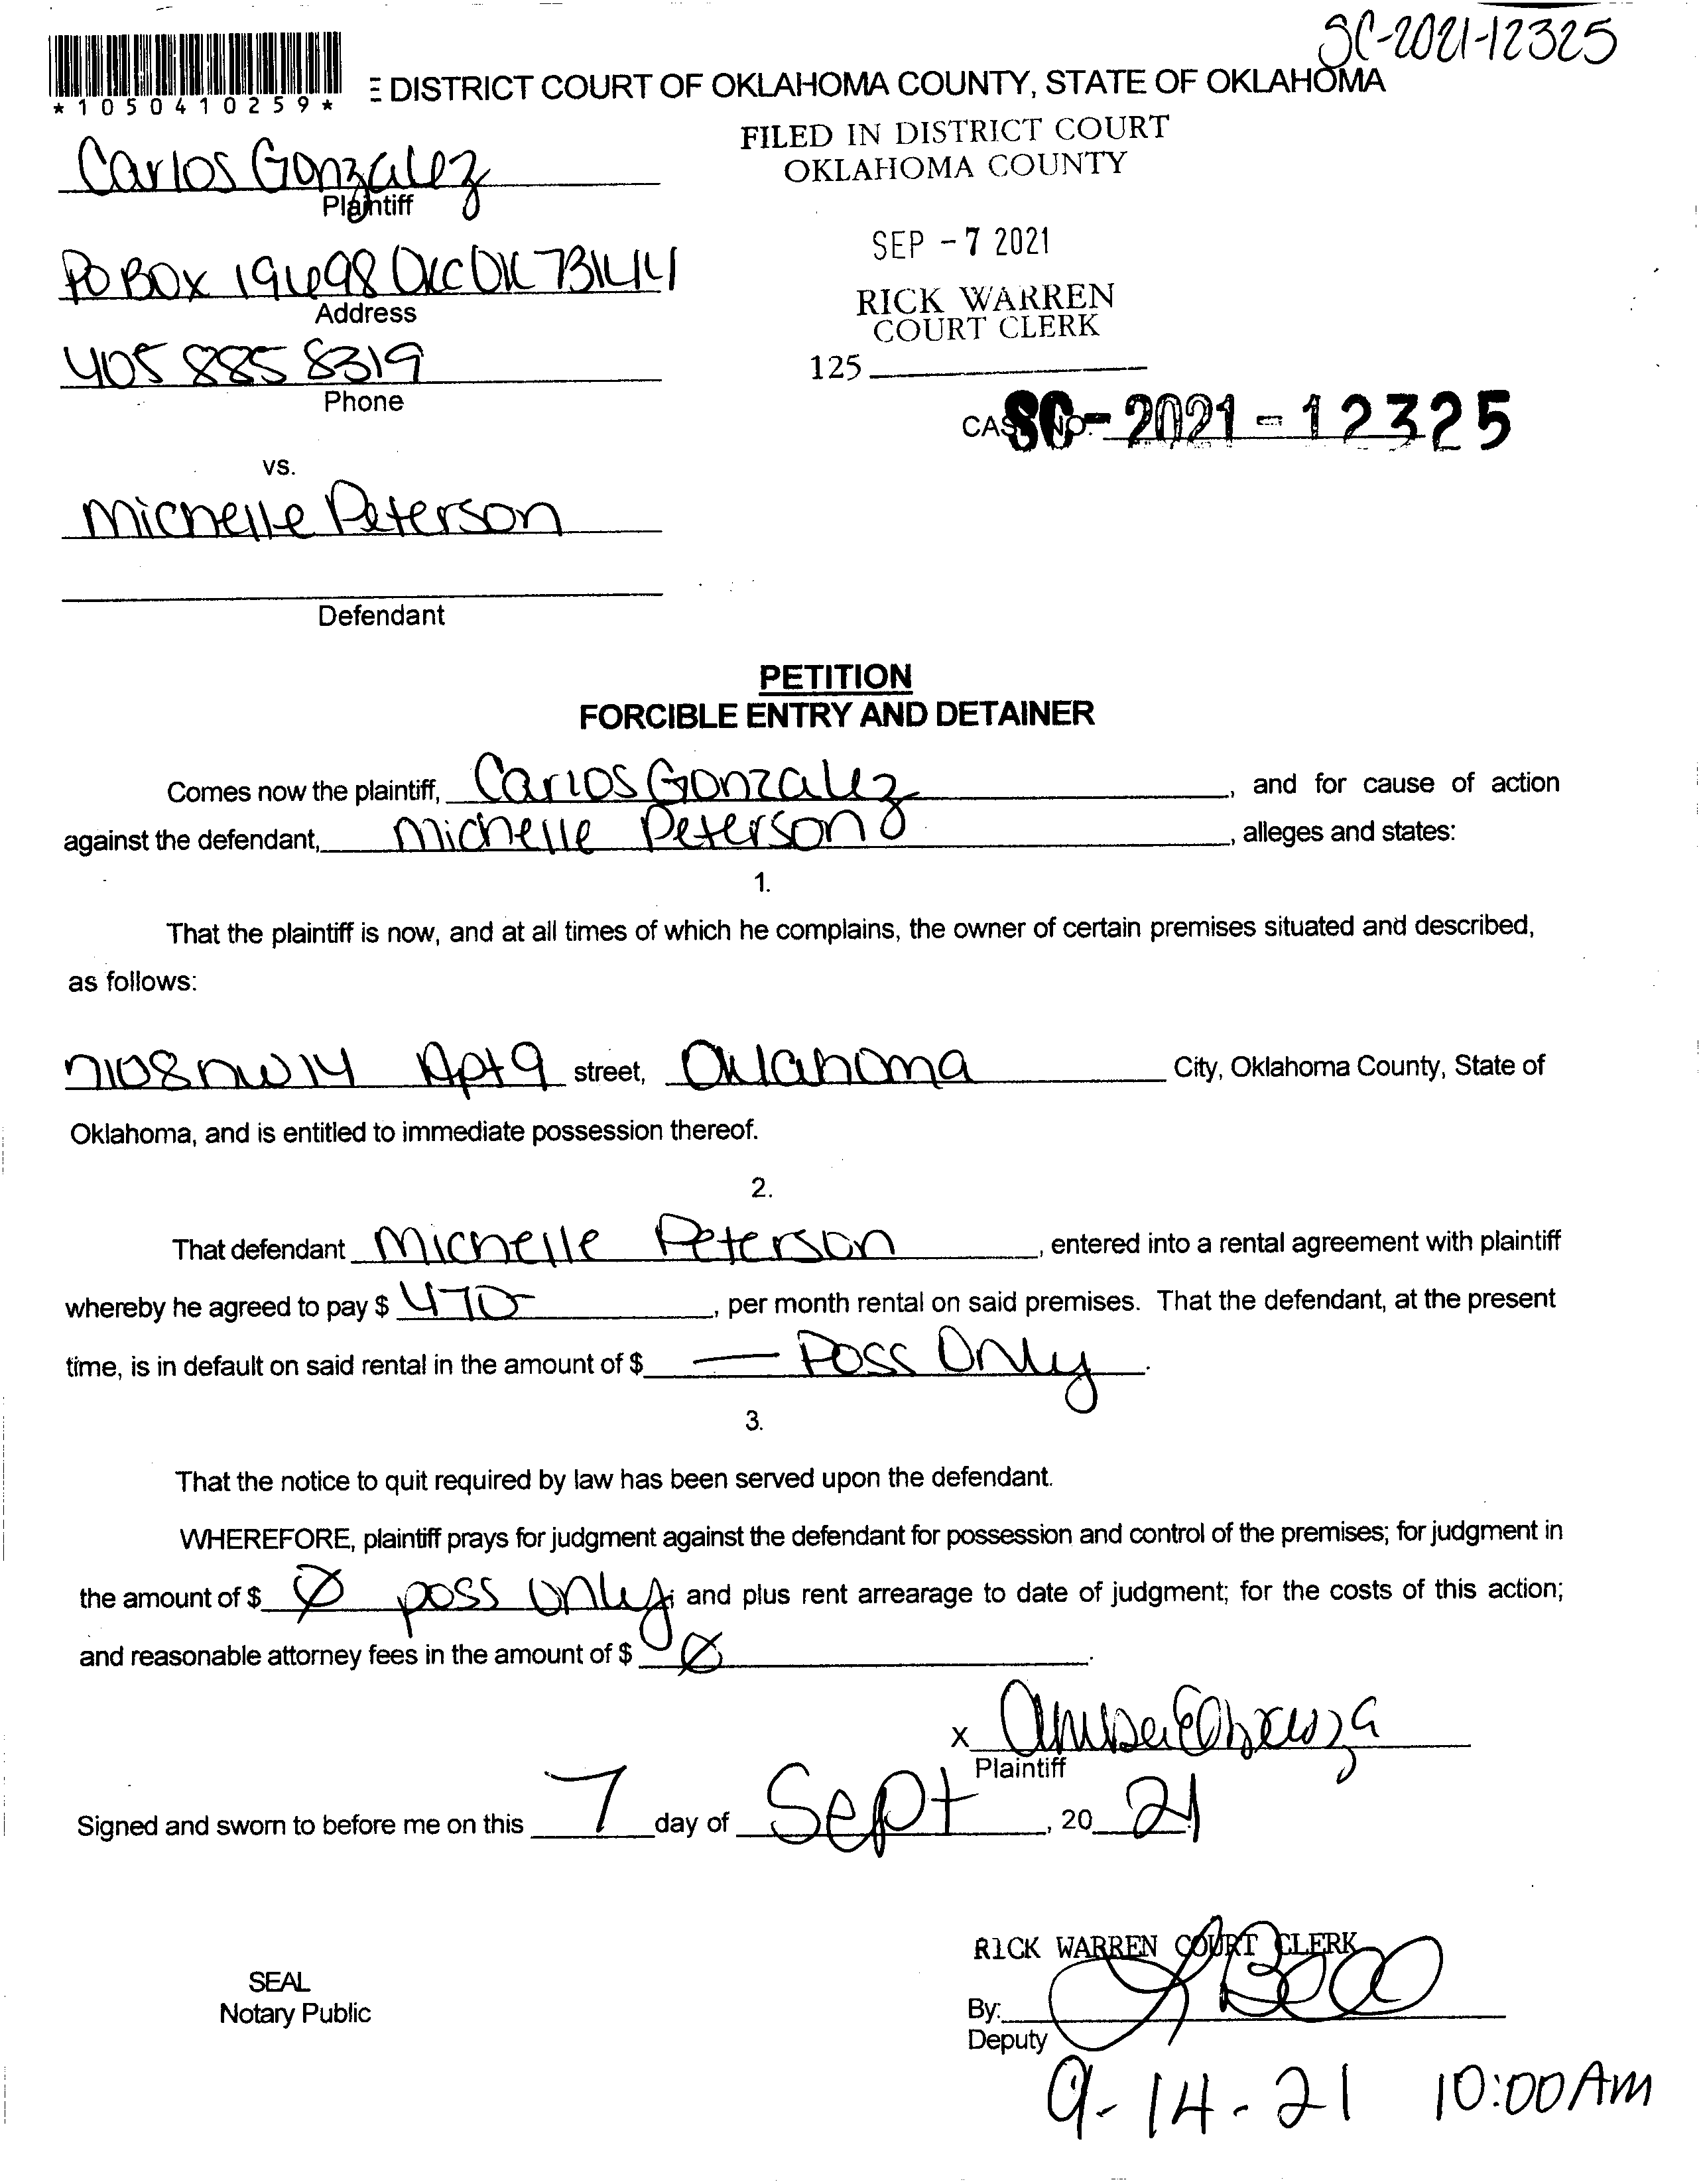 SC-2021-12325
*1050410259*
E DISTRICT COURT OF OKLAHOMA COUNTY, STATE OF OKLAHOMA
FILED IN DISTRICT COURT
OKLAHOMA COUNTY
Carlos Gonzalez
Plaintiff
SEP -7 2021
PO BOX 19698 OKC OK 73144
Address
RICK WARREN
COURT CLERK
405 885 8319
Phone
125
CASE NO. SC-2021-12325
vs.
Michelle Peterson
Defendant
PETITION
FORCIBLE ENTRY AND DETAINER
Comes now the plaintiff, Carlos Gonzalez, and for cause of action
against the defendant, Michelle Peterson, alleges and states:
1.
That the plaintiff is now, and at all times of which he complains, the owner of certain premises situated and described,
as follows:
7108 NW 14 Apt 9 street, Oklahoma City, Oklahoma County, State of
Oklahoma, and is entitled to immediate possession thereof.
2.
That defendant Michelle Peterson, entered into a rental agreement with plaintiff
whereby he agreed to pay $ 470-, per month rental on said premises. That the defendant, at the present
time, is in default on said rental in the amount of $ — Poss Only.
3.
That the notice to quit required by law has been served upon the defendant.
WHEREFORE, plaintiff prays for judgment against the defendant for possession and control of the premises; for judgment in
the amount of $ Ø poss only; and plus rent arrearage to date of judgment; for the costs of this action;
and reasonable attorney fees in the amount of $ Ø.
x
Plaintiff
Signed and sworn to before me on this 7 day of Sept, 20 21
RICK WARREN COURT CLERK
SEAL
Notary Public
By:
Deputy
9-14-21 10:00AM